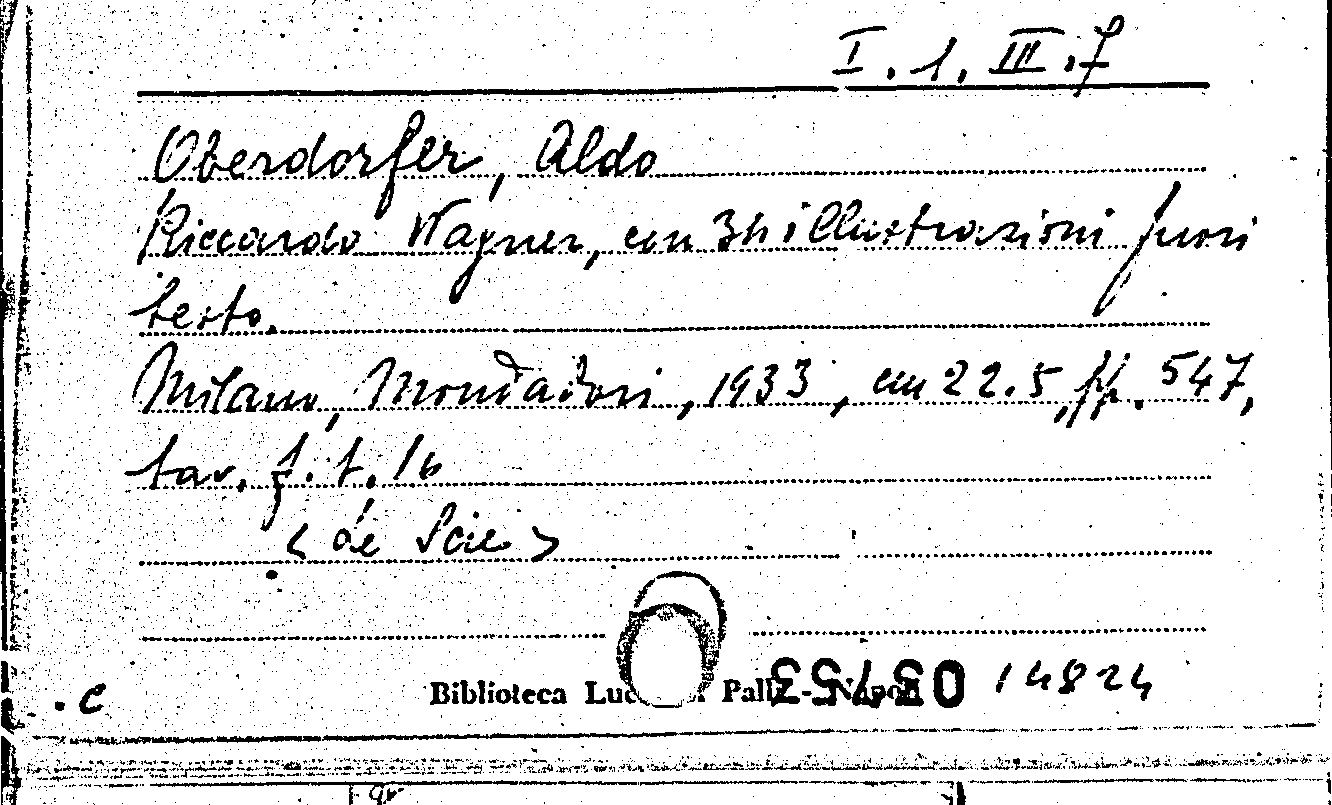 I. 1. III. 7
Oberdorfer, Aldo
Riccardo Wagner, con 34 illustrazioni fuori
testo.
Milano, Mondadori, 1933, cm 22.5, pp. 547,
tav. f. t. 16
< Le Scie >
Biblioteca Palli - Napoli 14824
. c